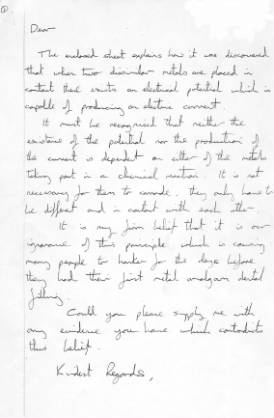 ①
Dear
The enclosed sheet explains how it was discovered
that when two dissimilar metals are placed in
contact there exists an electrical potential which is
capable of producing an electric current.
It must be recognised that neither the
existence of the potential nor the production of
the current is dependent on either of the metals
taking part in a chemical reaction. It is not
necessary for them to corrode, they only have to
be different and in contact with each other.
It is my firm belief that it is our
ignorance of this principle which is causing
many people to hanker for the days before
they had their first metal amalgam dental
filling.
Could you please supply me with
any evidence you have which contradicts
this belief.
Kindest Regards,